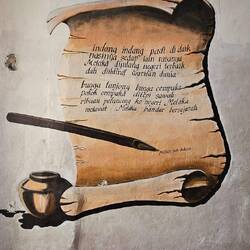 Indang indang padi didaik
nasinya sedap lain rasanya
Melaka dijulang negeri terbaik
dah diiktiraf warisan dunia
bunga tanjung bunga cempaka
pokok cempaka ditepi sawah
ribuan pelancong ke negeri Melaka
melawat Melaka bandar bersejarah